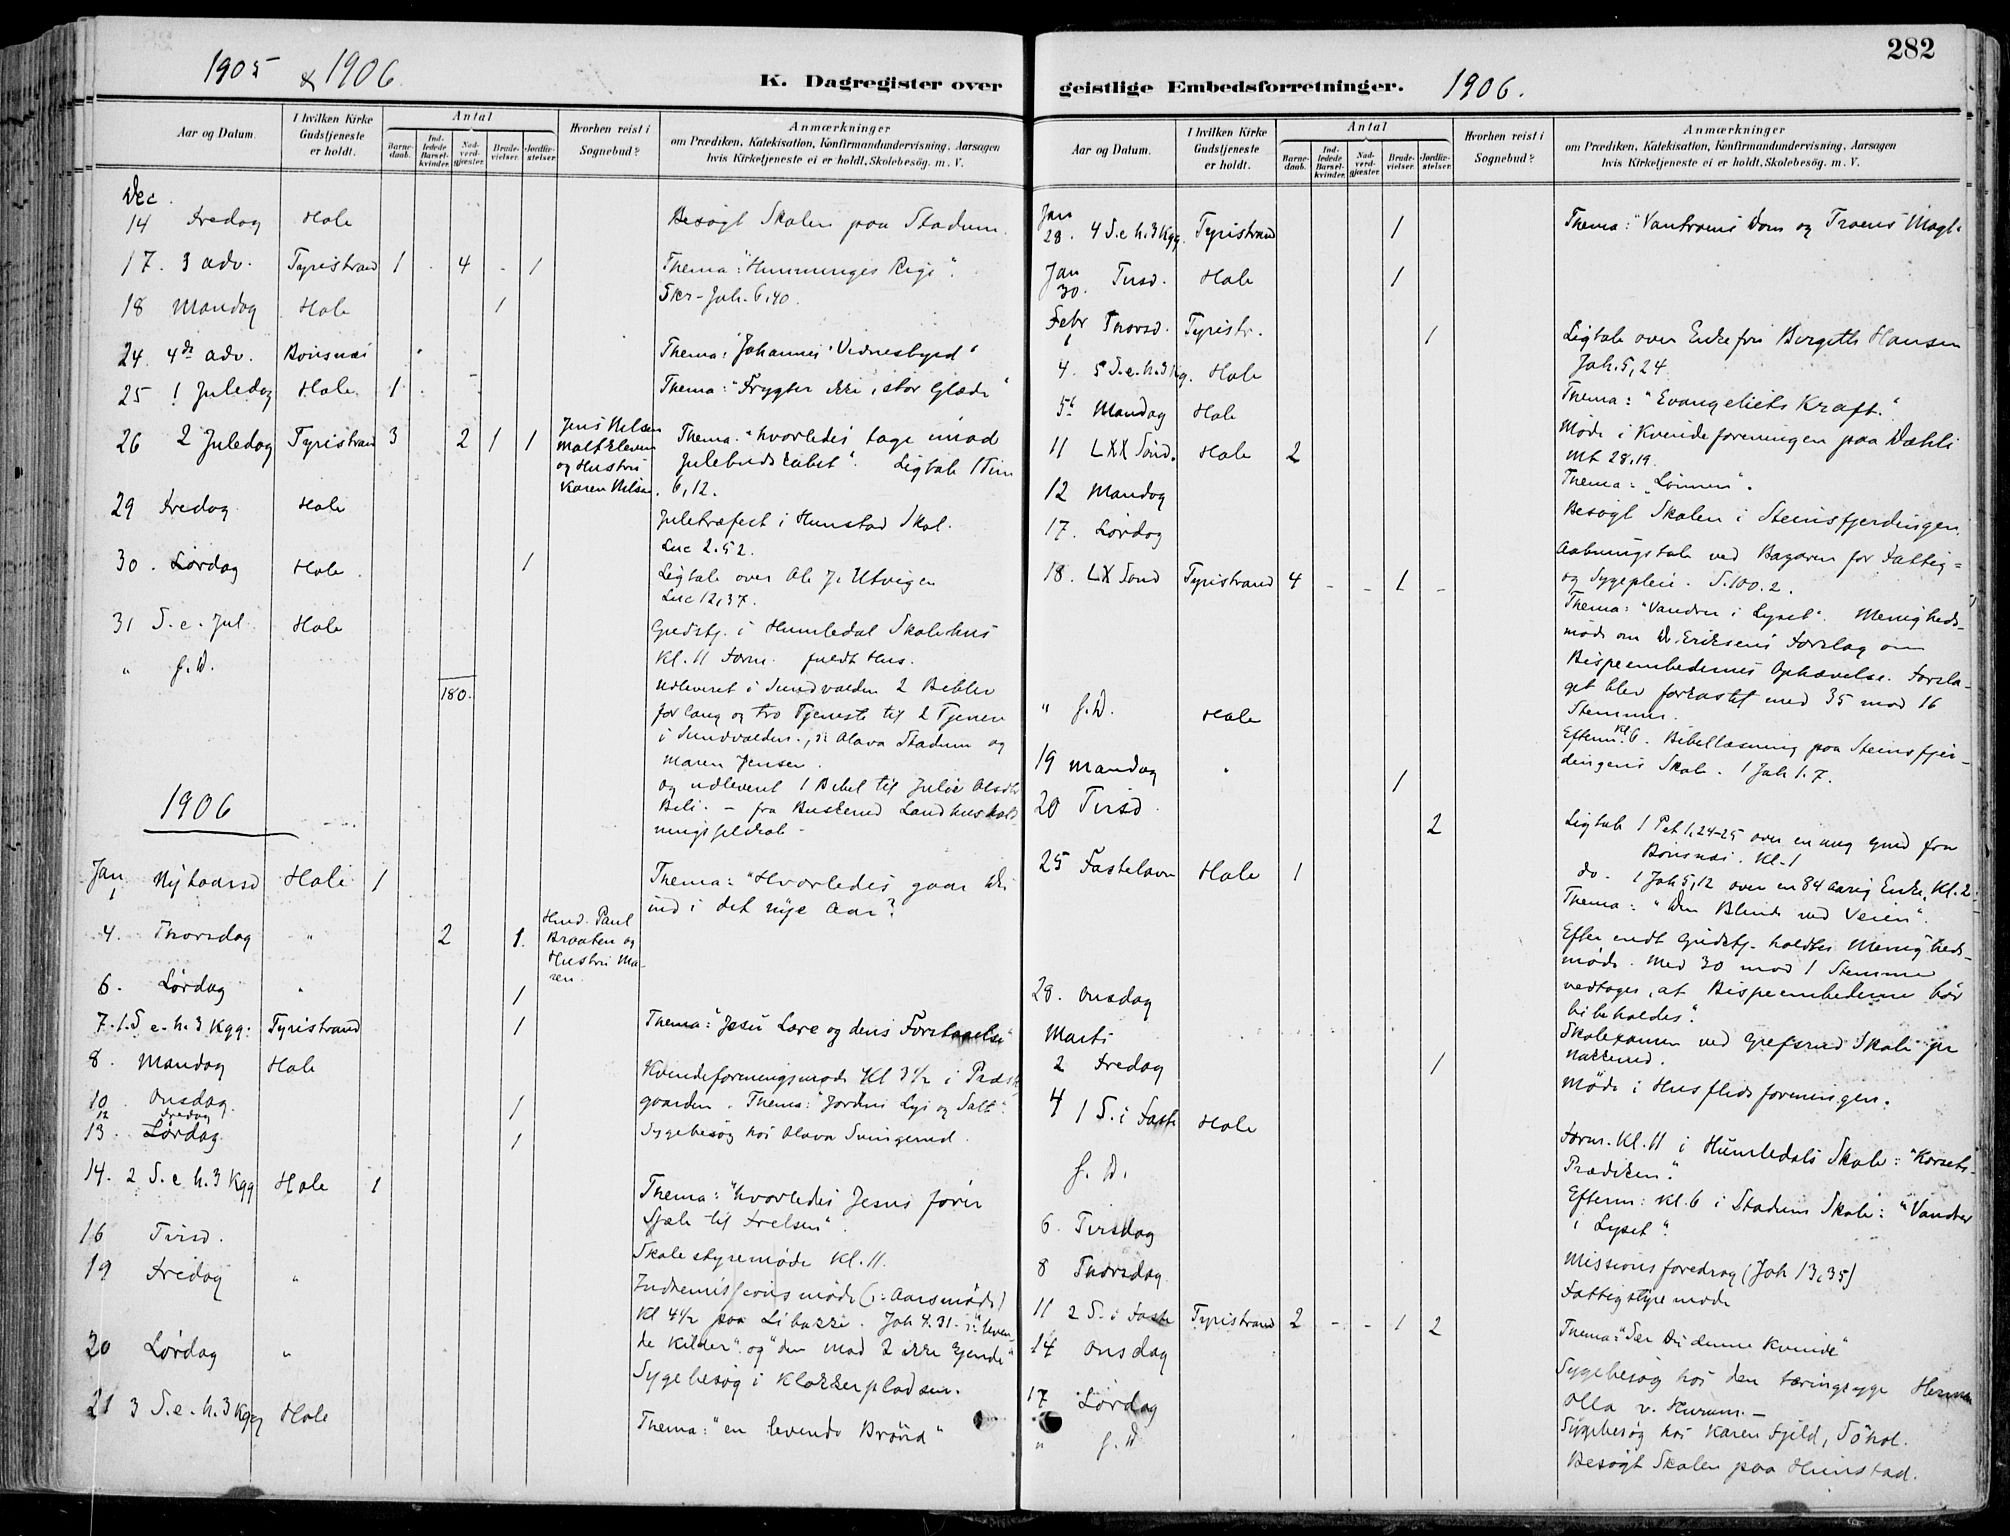 282
1905 & 1906
K. Dagregister over
Aar og Datum.
I hvilken Kirke Gudstjeneste er holdt.
Antal
Barnedaab.
Indledede Barselkvinder.
Nadverdgjæster.
Brudevielser.
Jordfæstelser.
Hvorhen reist i Sognebud?
Anmærkninger
om Prædiken, Katekisation, Konfirmandundervisning, Aarsagen
hvis Kirketjeneste ei er holdt, Skolebesög, m. V.
Dec.
14 Fredag Hole Besøgt Skolen paa Stadum.
17. 3 adv. Tyristrand 1 - 4 - 1 Thema: "Himmeriges Rige".
Skr - Joh. 6,40.
18 Mandag Hole 1
24. 4de adv. Bönsnæs Thema: "Johannes' Vidnesbyrd"
25 1 Juledag Hole 1 Thema: "Frygter ikke, stor Glæde"
26 2 Juledag Tyristrand 3 2 1 1 Jens Nilsen
og Hustru
Karen Nilsen. Thema: "hvorledes tage imod
Julebudskabet". Ligtale 1 Tim
6,12.
29 Fredag Hole Juletræfest i Hunstad Skol.
Luc 2.52.
30. Lørdag Hole. 1 Ligtale over Ole J. Utvigen
Luc 12,37.
31 S. e. Jul Hole Gudstj. i Humledal Skolehus
Kl. 11 Form. fuldt Hus.
" s. D. 180. Udleveret i Sundvolden 2 Bibler
for lang og tro Tjeneste til 2 Tjenere
i Sundvolden, ɔ: Olava Stadum og
Maren Jensen.
og udleveret 1 Bibel til Julie Olsdtr
Beli. - fra Buskerud Landhushold-
ningsselskab -
1906
Jan
1 Nytaarsd Hole 1 Thema: "Hvorledes gaar vi
ind i det nye Aar?
4. Thorsdag " 2 1. Husd. Paul
Braaten og
Hustru Ma-
ren.
6. Lørdag " 1
7. 1. S e. h. 3 Kgg. Tyristrand 1 Thema: "Jesu Lære og dens Forstaaelse"
8. Mandag Hole Kvindeforeningsmøde Kl 3 1/2 i Præste
gaarden. Thema: "Jordens Lys og Salt".
10. Onsdag.
12 Fredag 1
13. Lørdag 1 Sygebesøg hos Olava Svingerud.
14. 2 S. e h. 3 Kgg Hole 1 Thema: "hvorledes Jesus fører
Sjæle til Frelsen".
16 Tirsd. Skolestyremøde Kl. 11.
19 Fredag " Indremissionsmøde (ɔ: Aarsmøde)
Kl 4 1/2 paa Libakke. Joh 4.31 - ɔ: "leven-
de Kilder" og "den mad I ikke kjende"
20 Lørdag " Sygebesøg i Klokkerpladsen.
21 3 S. e. h. 3 Kgg Hole Thema: "en levende Brønd"
geistlige Embedsforretninger. 1906.
Aar og Datum.
I hvilken Kirke Gudstjeneste er holdt.
Antal
Barnedaab.
Indledede Barselkvinder.
Nadverdgjæster.
Brudevielser.
Jordfæstelser.
Hvorhen reist i Sognebud?
Anmærkninger
om Prædiken, Katekisation, Konfirmandundervisning, Aarsagen
hvis Kirketjeneste ei er holdt, Skolebesög, m. V.
Jan
28. 4 S. e h. 3 Kgg. Tyristrand 1 Thema: "Vantroens Dom og Troens Magt"
Jan
30. Tirsd. Hole 1
Febr
1 Thorsd. Tyristr. 1 Ligtale over Enkefru Birgith Hansen
Joh. 5, 24.
4. 5 S. e. h. 3 Kg. Hole Thema: "Evangeliets Kraft."
5te Mandag Hole Møde i Kvindeforeningen paa Dæhli
Mt 28.19.
11 LXX Sönd. Hole 2 Thema: "Lönnen".
12 Mandag Besøgt Skolen i Steinsfjerdingen.
17. Lördag Aabningstale ved Bazaren for Fattig-
og Sygepleie. S. 100.2.
18. LX Sönd Tyristrand 4 - - 1 - Thema: "Vandrer i Lyset". Menigheds-
møde om Dr. Eriksens Forslag om
Bispeembedernes Ophævelse. Forsla-
get blev forkastet med 35 mod 16
Stemmer.
" s. D. Hole Efterm. Kl 6. Bibellæsning paa Steinsfjer-
dingens Skole. 1 Joh 1.7.
19 Mandag " 1
20 Tirsd. 2 Ligtale 1 Pet 1,24-25 over en ung Gut fra
Bönsnæs. Kl. 1
do. 1 Joh 5,12 over en 84 aarig Enke. Kl. 2.
25 Fastelavn Hole 1 Thema: "Den Blinde ved Veien".
Efter endt Gudstj. holdtes Menigheds-
møde. Med 30 mod 1 Stemme
vedtoges, at Bispeembederne bør
bibeholdes".
28. Onsdag Skoleexamen ved Grefsrud Skole pr
Nakkerud.
Marts
2 Fredag 1 Møde i Husflidsforeningen.
4 1 S. i Faste Hole Form. Kl. 11 i Humledals Skole: "Korsets-
Prædiken."
s. D. Efterm: Kl. 6 i Stadum Skole: "Vandrer
i Lyset".
6. Tirsdag Missionsforedrag (Joh 13,35)
8 Thorsdag Fattigstyremøde
11 2 S. i Faste Tyristrand 2 - - 1 2 Thema: "Ser Du denne Kvinde"
14 Onsdag Sygebesøg hos den tæringsyge
Olla v. Hurum. -
17 Lørdag Sygebesøg hos Karen Fjeld, Søhol.
" s. D Besøgt Skolen paa Hunstad.